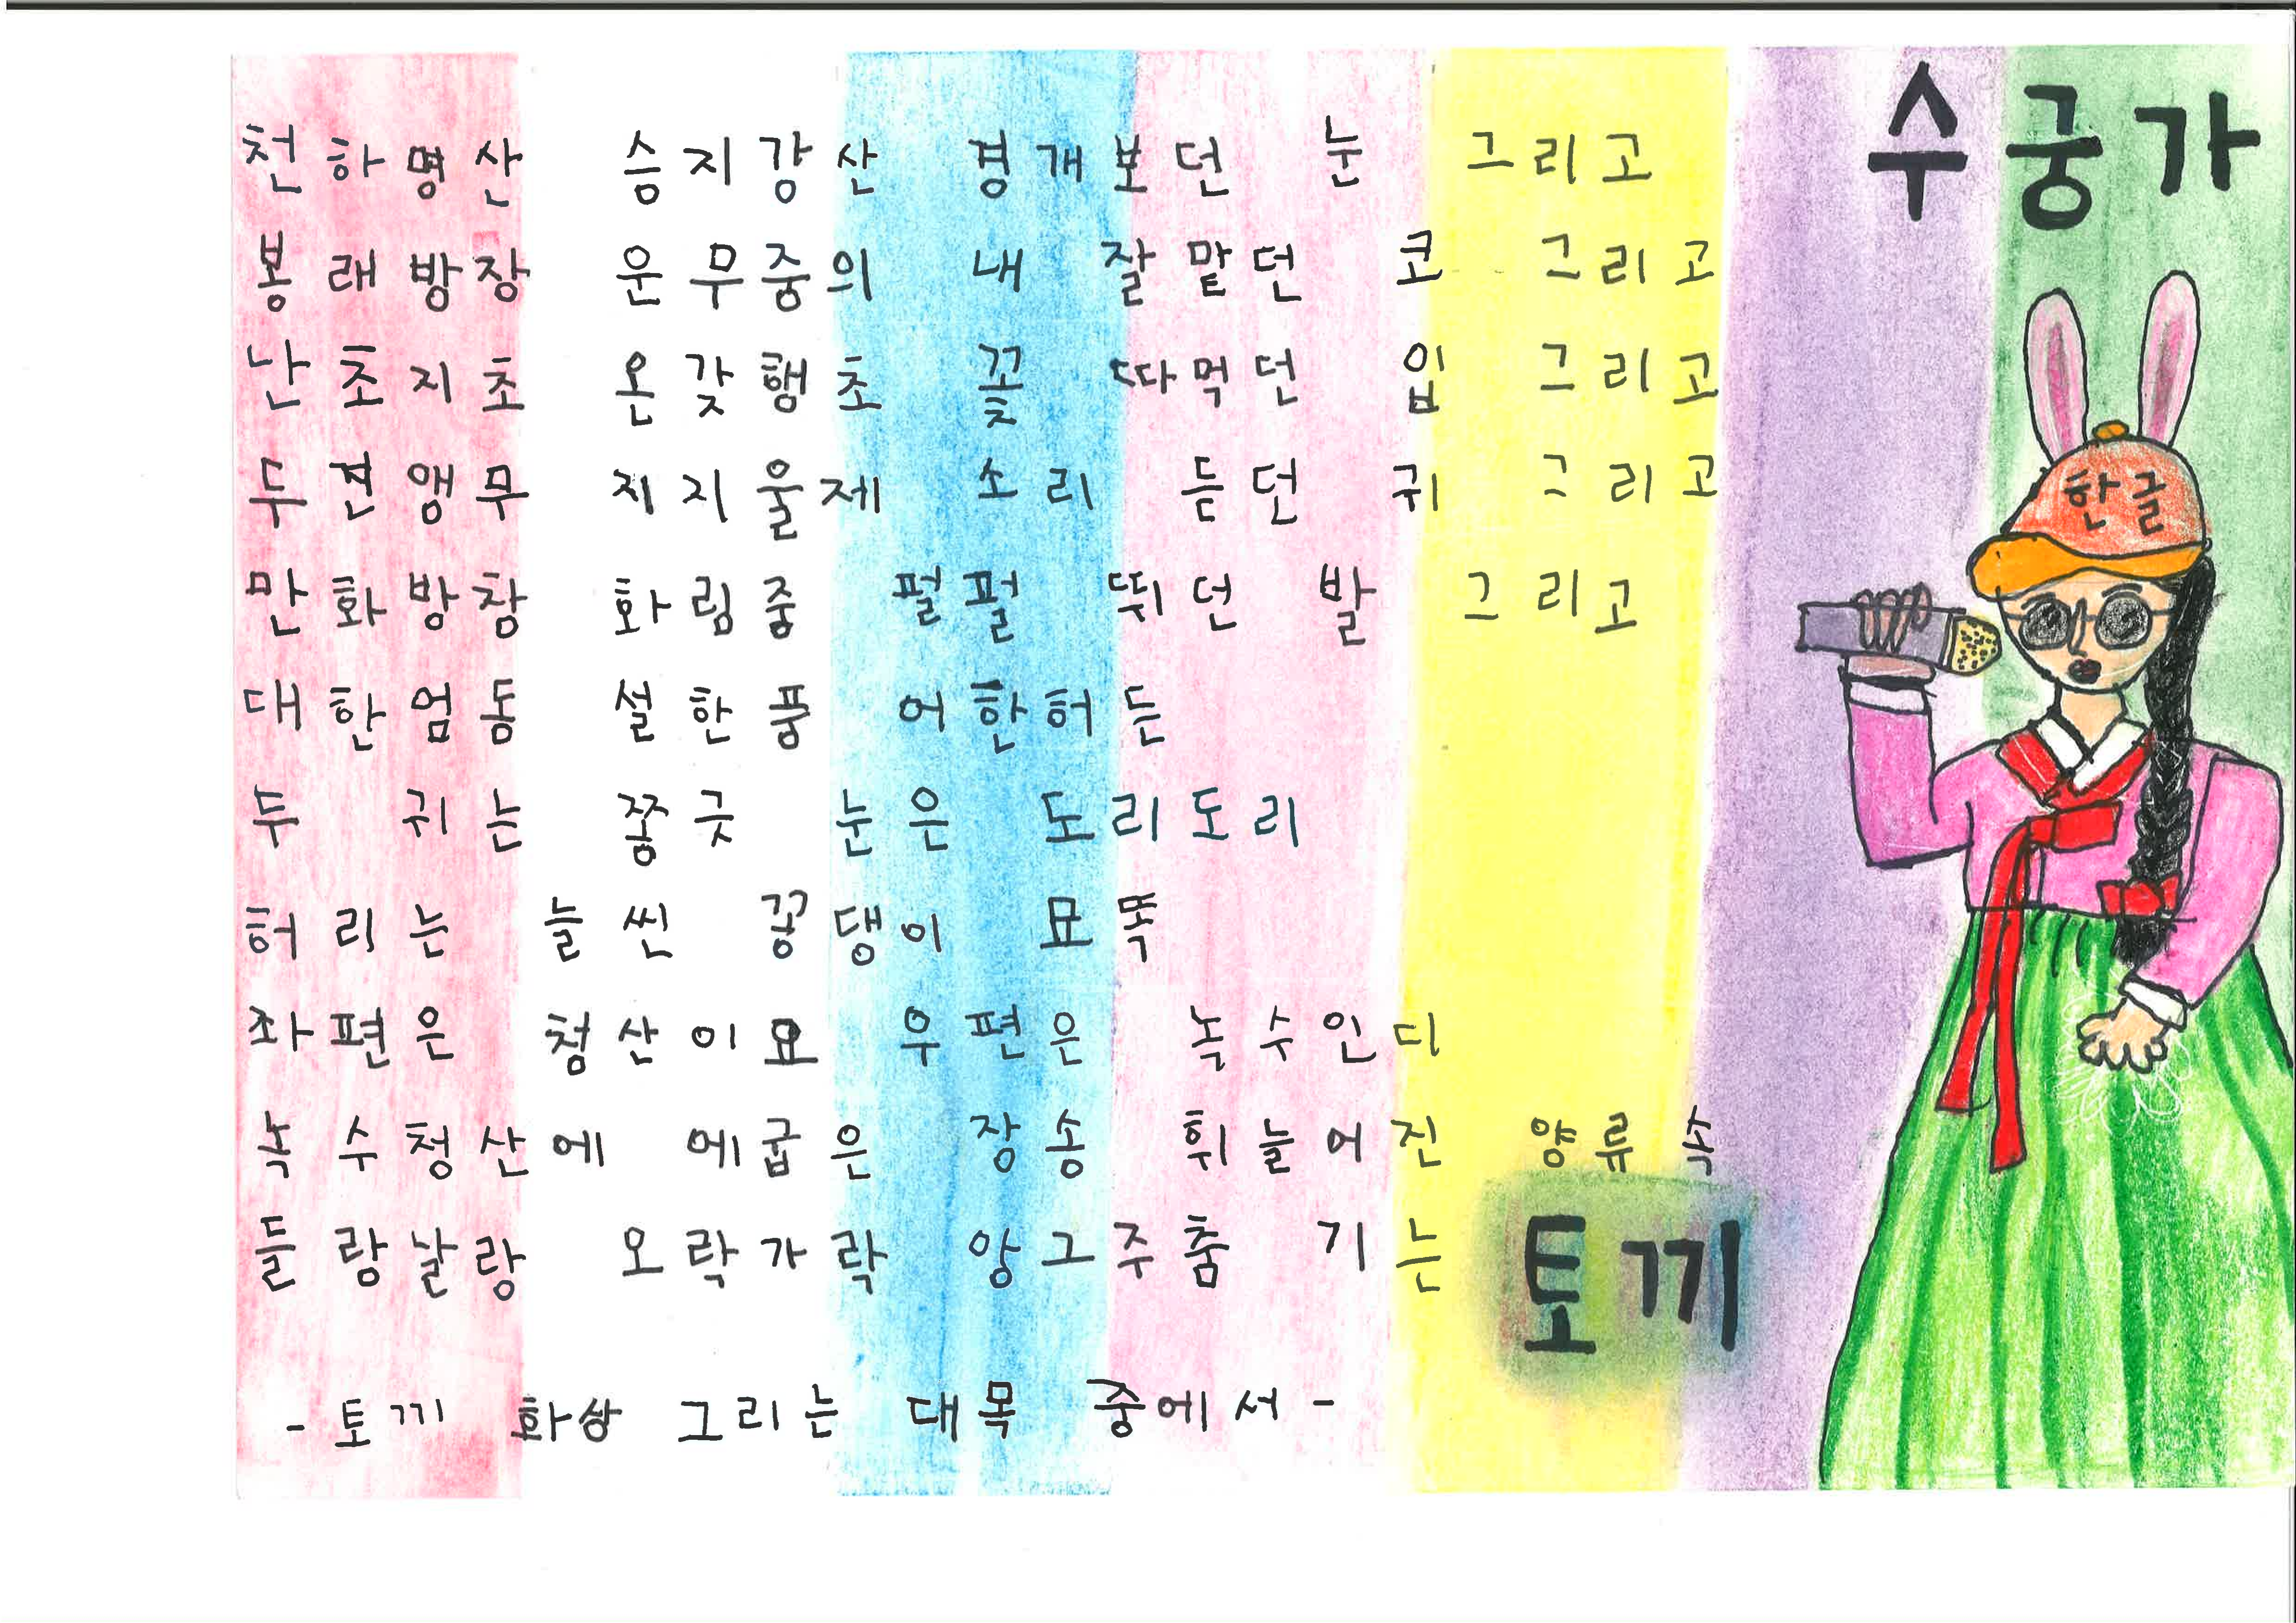 수궁가
천하명산 승지강산 경개보던 눈 그리고
봉래방장 운무중의 내 잘 맡던 코 그리고
난초지초 온갖행초 꽃 따먹던 입 그리고
두견앵무 지지울제 소리 듣던 귀 그리고
만화방창 화림중 펄펄 뛰던 발 그리고
대한엄동 설한풍 어한허든
두 귀는 쫑긋 눈은 도리도리
허리는 늘씬 꽁댕이 묘똑
좌편은 청산이요 우편은 녹수인디
녹수청산에 에굽은 장송 휘늘어진 양류속
들랑날랑 오락가락 앙그주춤 기는 토끼
- 토끼 화상 그리는 대목 중에서 -
한글